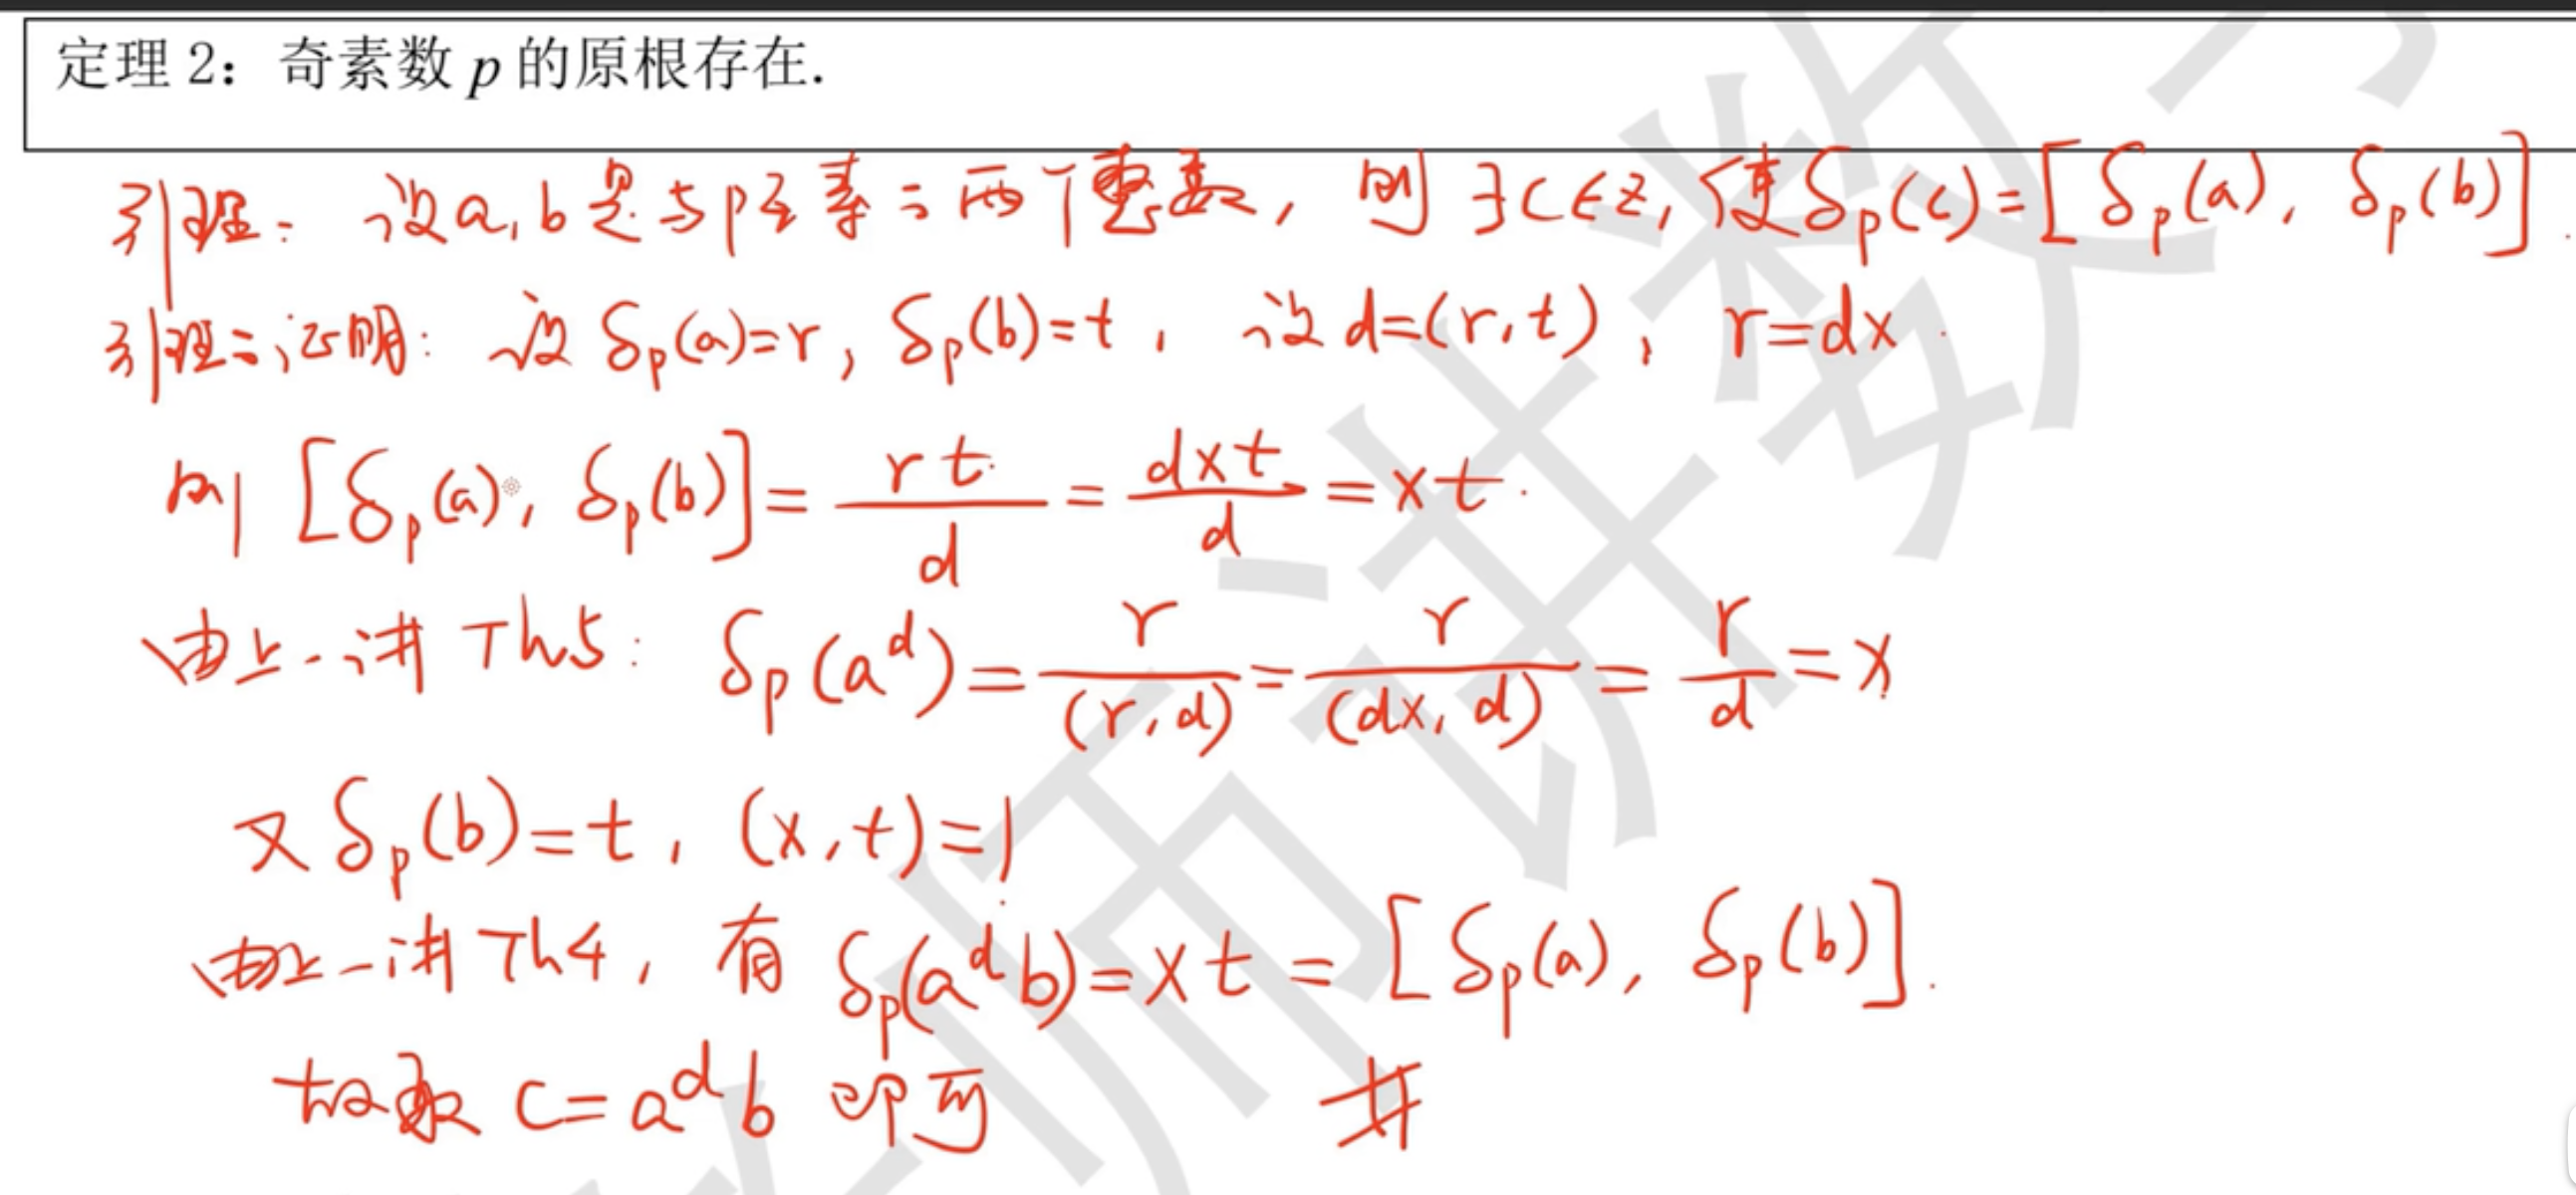 定理 2：奇素数 p 的原根存在.
引理：设a,b是与p互素的两个整数，则∃c∈Z,使δₚ(c)=[δₚ(a), δₚ(b)].
引理的证明：设 δₚ(a)=r, δₚ(b)=t, 设 d=(r,t), r=dx.
则 [δₚ(a), δₚ(b)] = rt/d = dxt/d = xt.
由上一讲 Th5: δₚ(aᵈ) = r/(r,d) = r/(dx,d) = r/d = x
又 δₚ(b)=t, (x,t)=1
由上一讲 Th4, 有 δₚ(aᵈb)=xt=[δₚ(a), δₚ(b)].
故取 c=aᵈb 即可 #
师讲数学